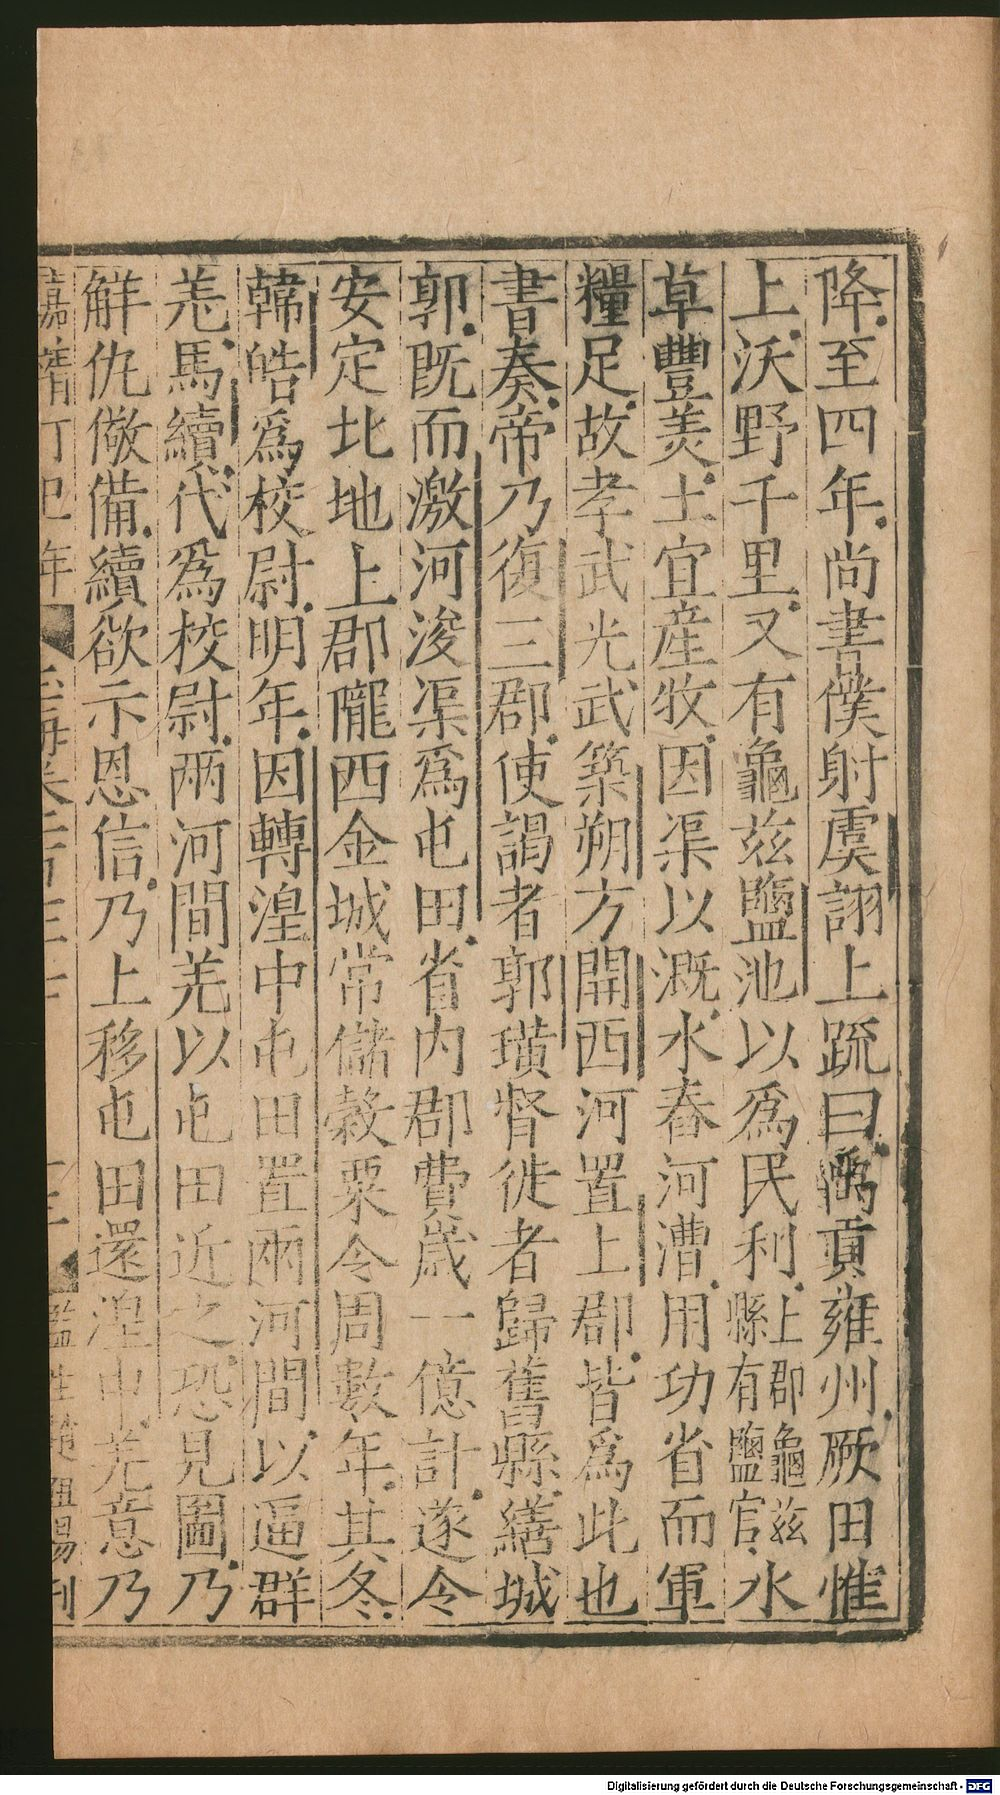 降至四年尚書僕射虞詡上疏曰禹貢雍州厥田惟
上沃野千里又有龜茲鹽池以爲民利上郡龜茲縣有鹽官水
草豐羙土宜産牧因渠以溉水舂河漕用功省而軍
糧足故孝武光武築朔方開西河置上郡皆爲此也
書奏帝乃復三郡使謁者郭璜督徙者歸舊縣繕城
郭既而激河浚渠爲屯田省内郡費歲一億計遂令
安定北地上郡隴西金城常儲穀粟令周數年其冬
韓皓爲校尉明年因轉湟中屯田置兩河間以逼群
羌馬續代爲校尉兩河間羌以屯田近之恐見圖乃
解仇儆備續欲示恩信乃上移屯田還湟中羌意乃
嘉靖丁巳年
監生趙祖暘刊
Digitalisierung gefördert durch die Deutsche Forschungsgemeinschaft - DFG